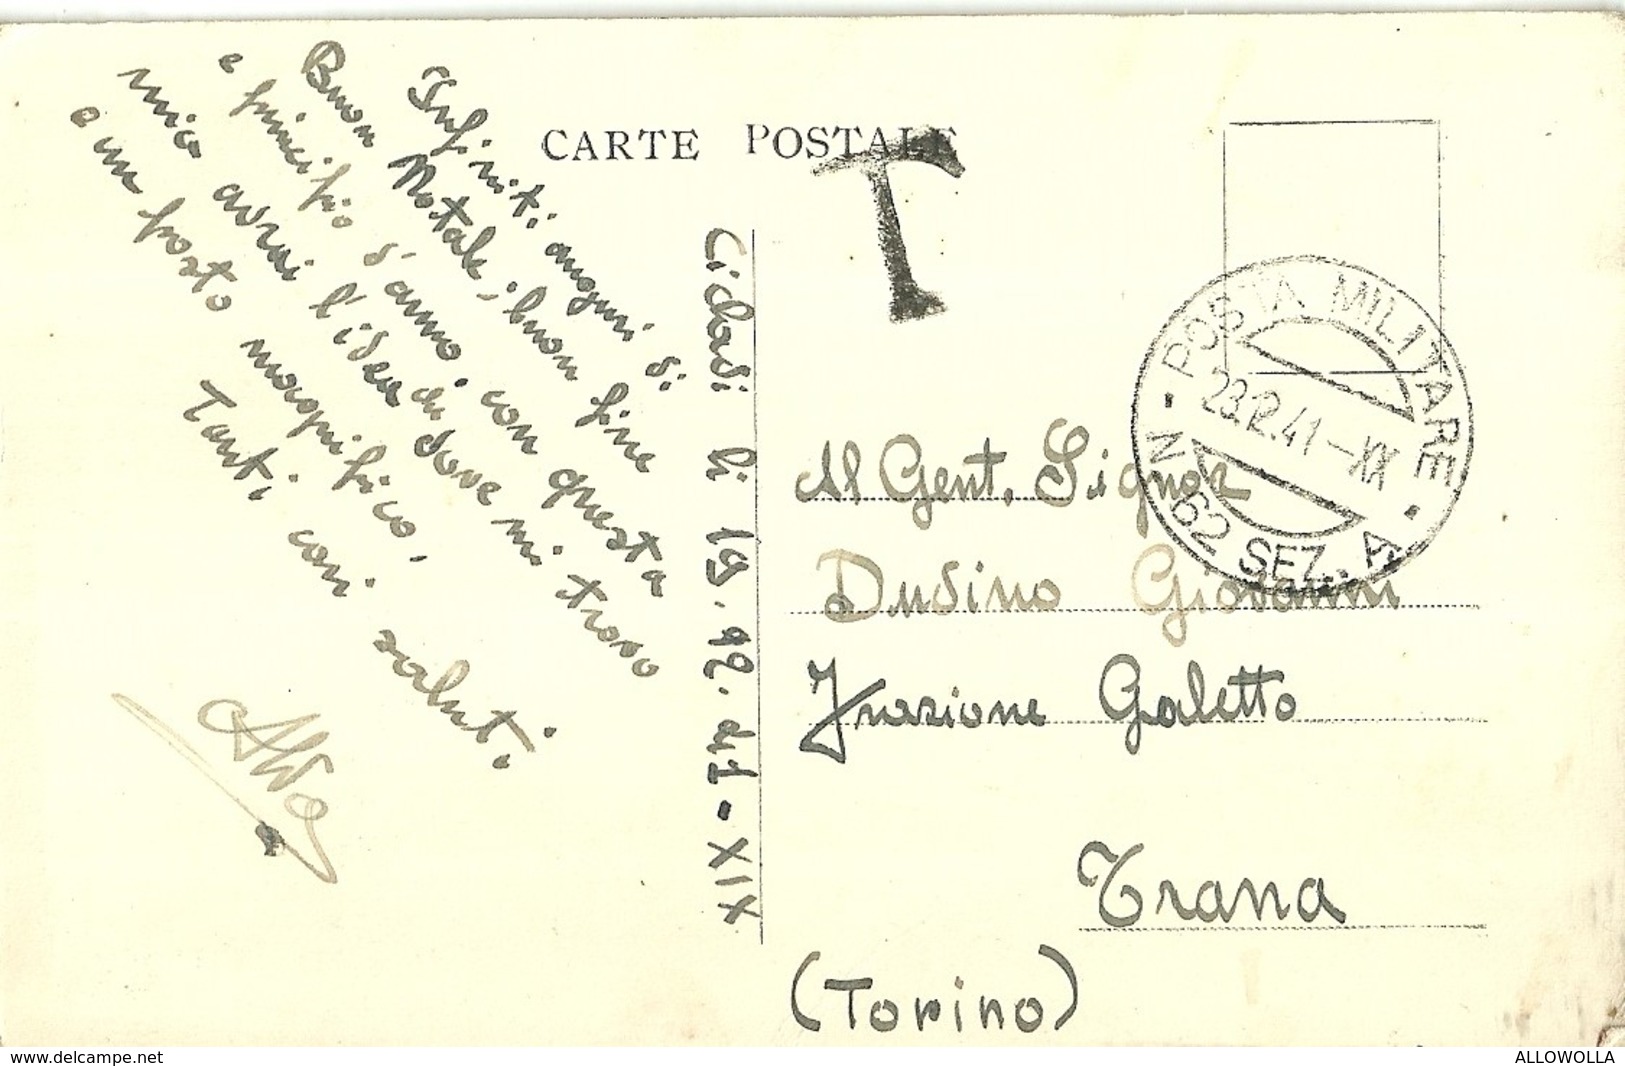 CARTE POSTALE
T
Infiniti auguri di
Buon Natale, buon fine
e principio d'anno. con questa
mia avrai l'idea di dove mi trovo
e un posto magnifico.
Tanti cari saluti.
Aldo
li 19.12.41-XIX
POSTA MILITARE
N 62 SEZ. A
23.12.41-XX
Al Gent. Signor
Dudino Giovanni
Frazione Galetto
Trana
(Torino)
www.delcampe.net
ALLOWOLLA